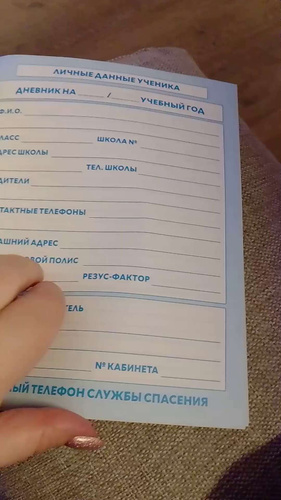 ЛИЧНЫЕ ДАННЫЕ УЧЕНИКА
ДНЕВНИК НА ____/____ УЧЕБНЫЙ ГОД
Ф.И.О.
ЛАСС ШКОЛА №
ДРЕС ШКОЛЫ ТЕЛ. ШКОЛЫ
ДИТЕЛИ
ТАКТНЫЕ ТЕЛЕФОНЫ
АШНИЙ АДРЕС
ОВОЙ ПОЛИС РЕЗУС-ФАКТОР
ТЕЛЬ
№ КАБИНЕТА
ЫЙ ТЕЛЕФОН СЛУЖБЫ СПАСЕНИЯ